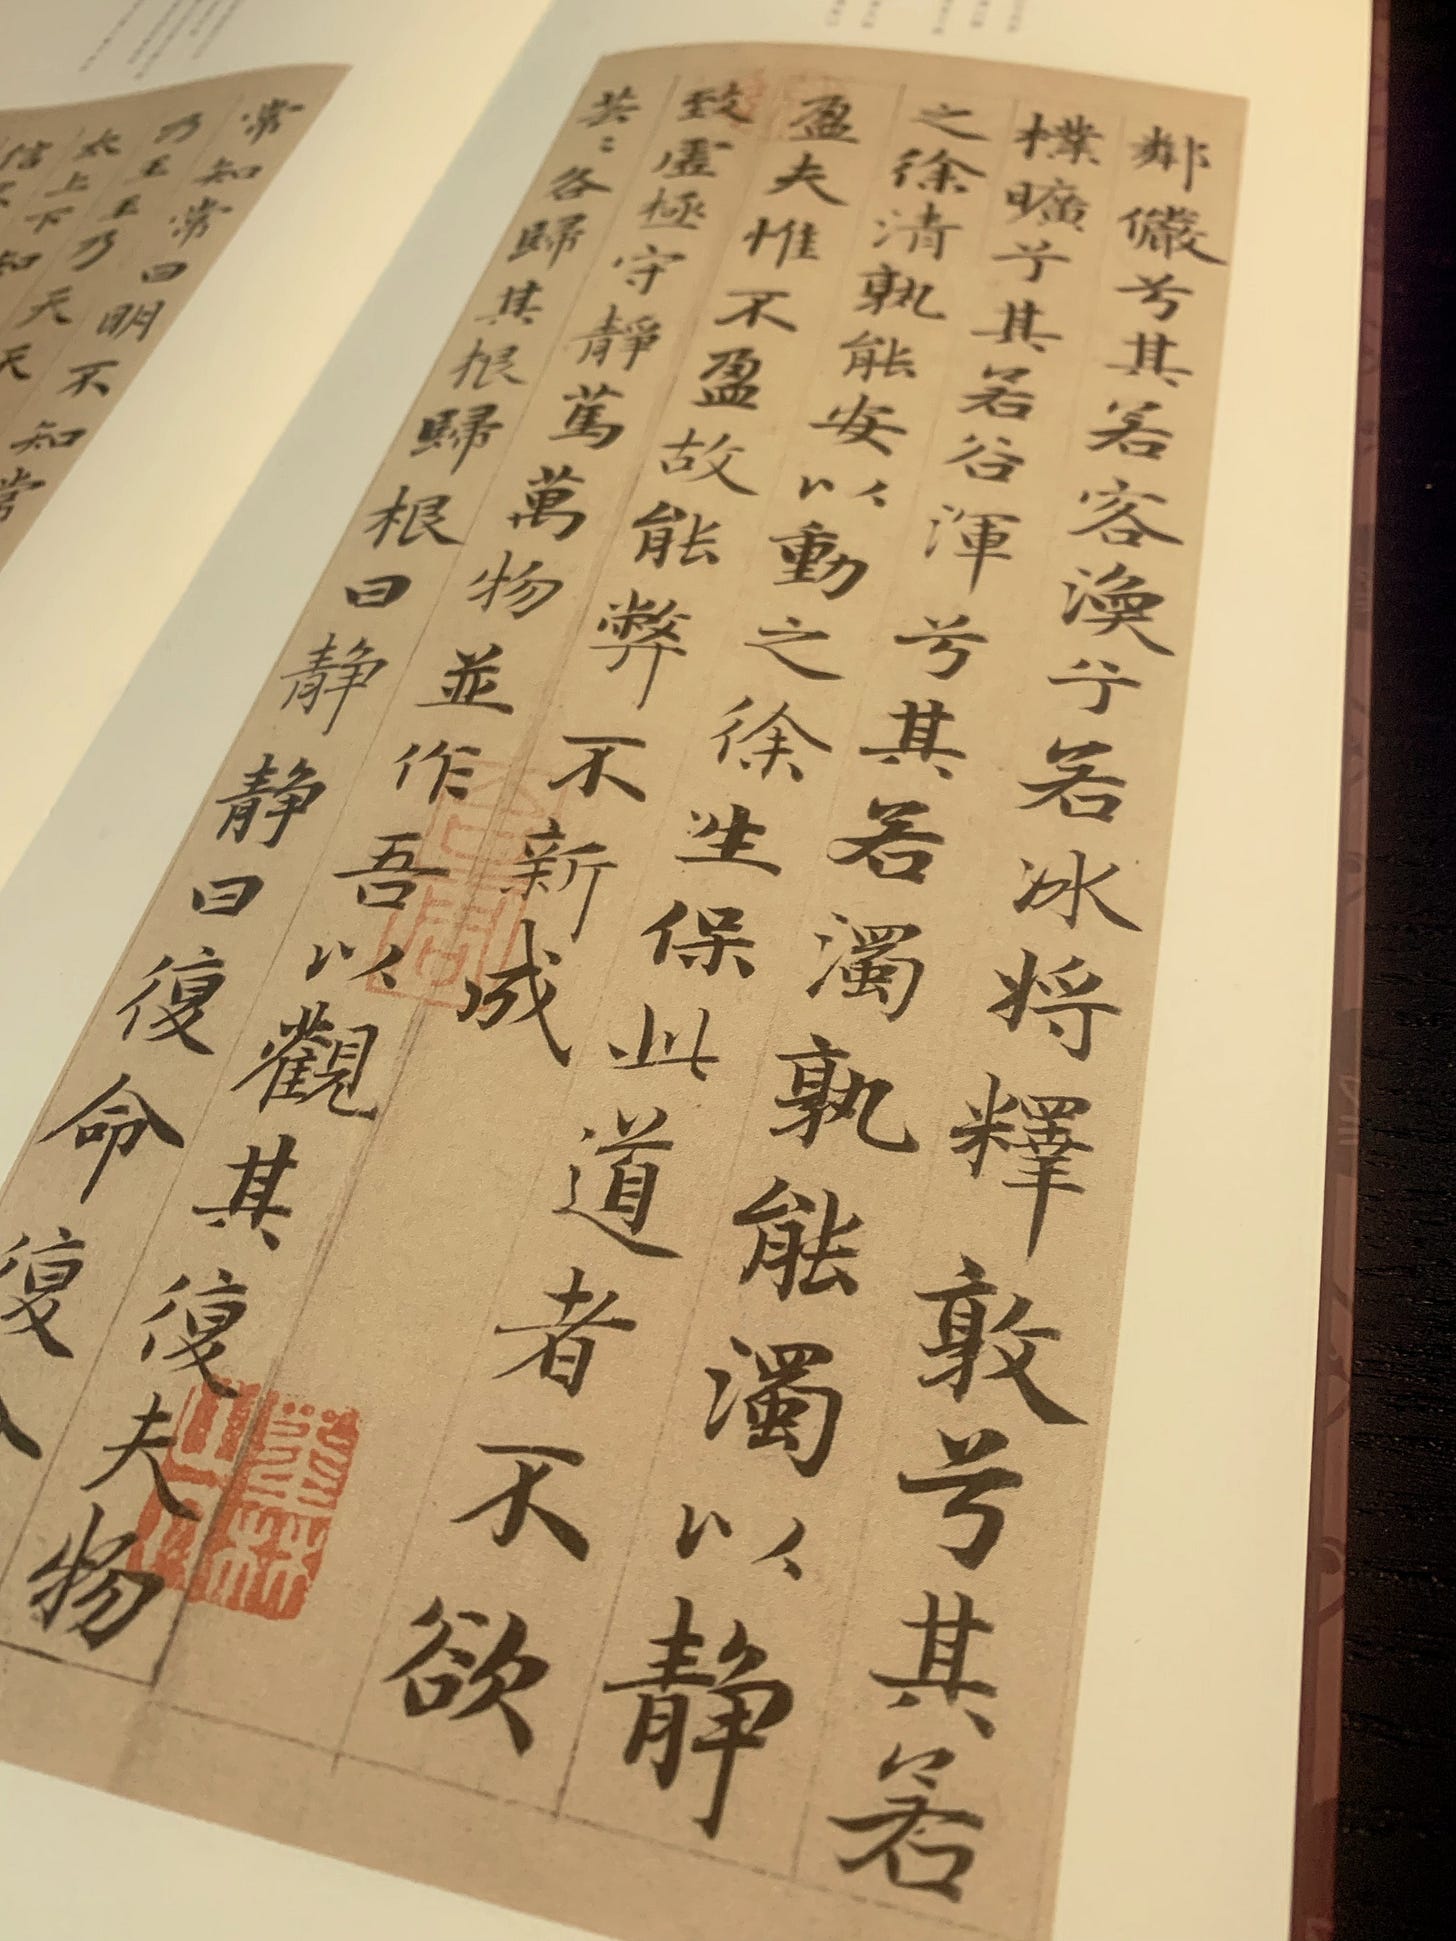 鄰儼兮其若客渙兮若冰將釋敦兮其若
樸曠兮其若谷渾兮其若濁孰能濁以静
之徐清孰能安以動之徐生保此道者不欲
盈夫惟不盈故能弊不新成
致虛極守靜篤萬物並作吾以觀其復夫物
芸〻各歸其根歸根曰静静曰復命復
常知常曰明不知常
乃王王乃天天
太上下知
信